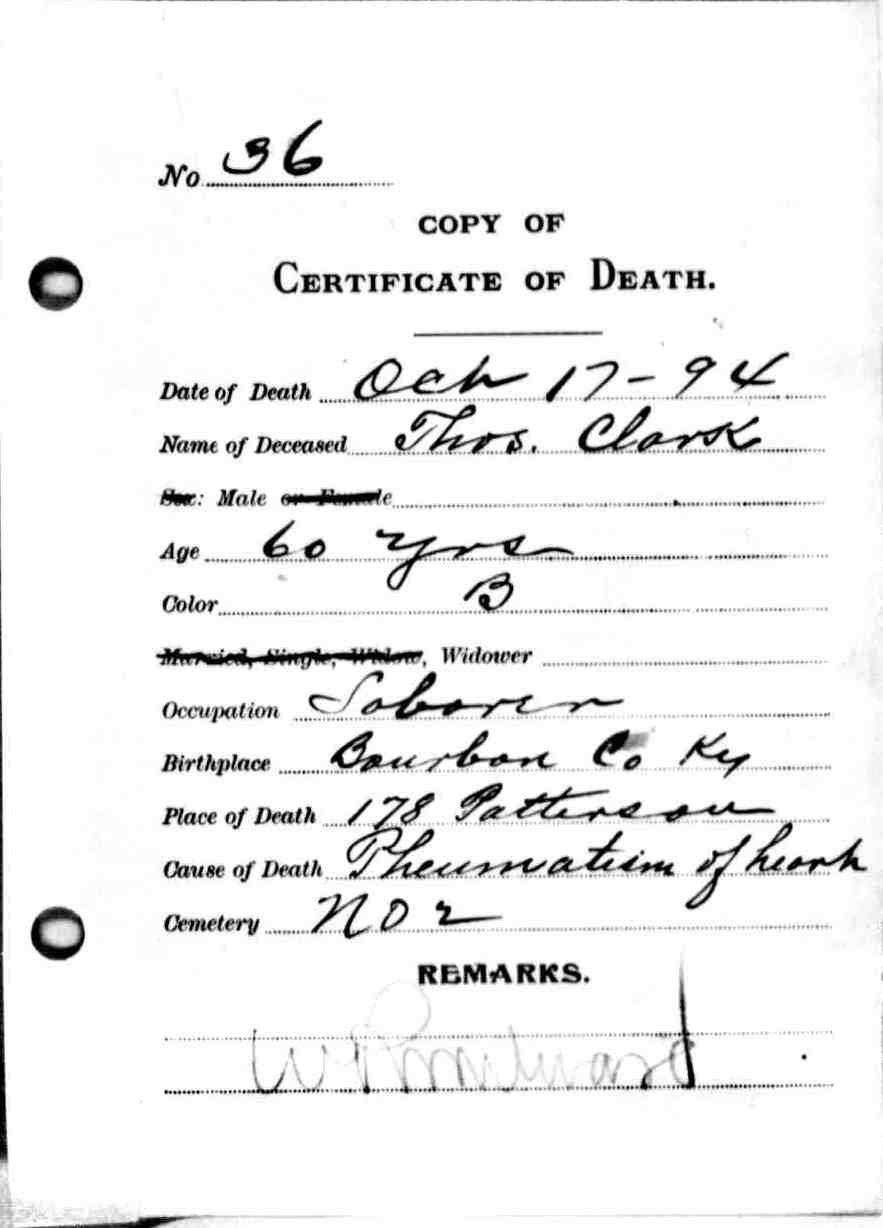 No 36
COPY OF
CERTIFICATE OF DEATH.
Date of Death Oct 17-94
Name of Deceased Thos. Clark
Sex: Male or Female
Age 60 yrs
Color B
Married, Single, Widow, Widower
Occupation Laborer
Birthplace Bourbon Co Ky
Place of Death 178 Patterson
Cause of Death Rheumatism of heart
Cemetery No 2
REMARKS.
W R Milward